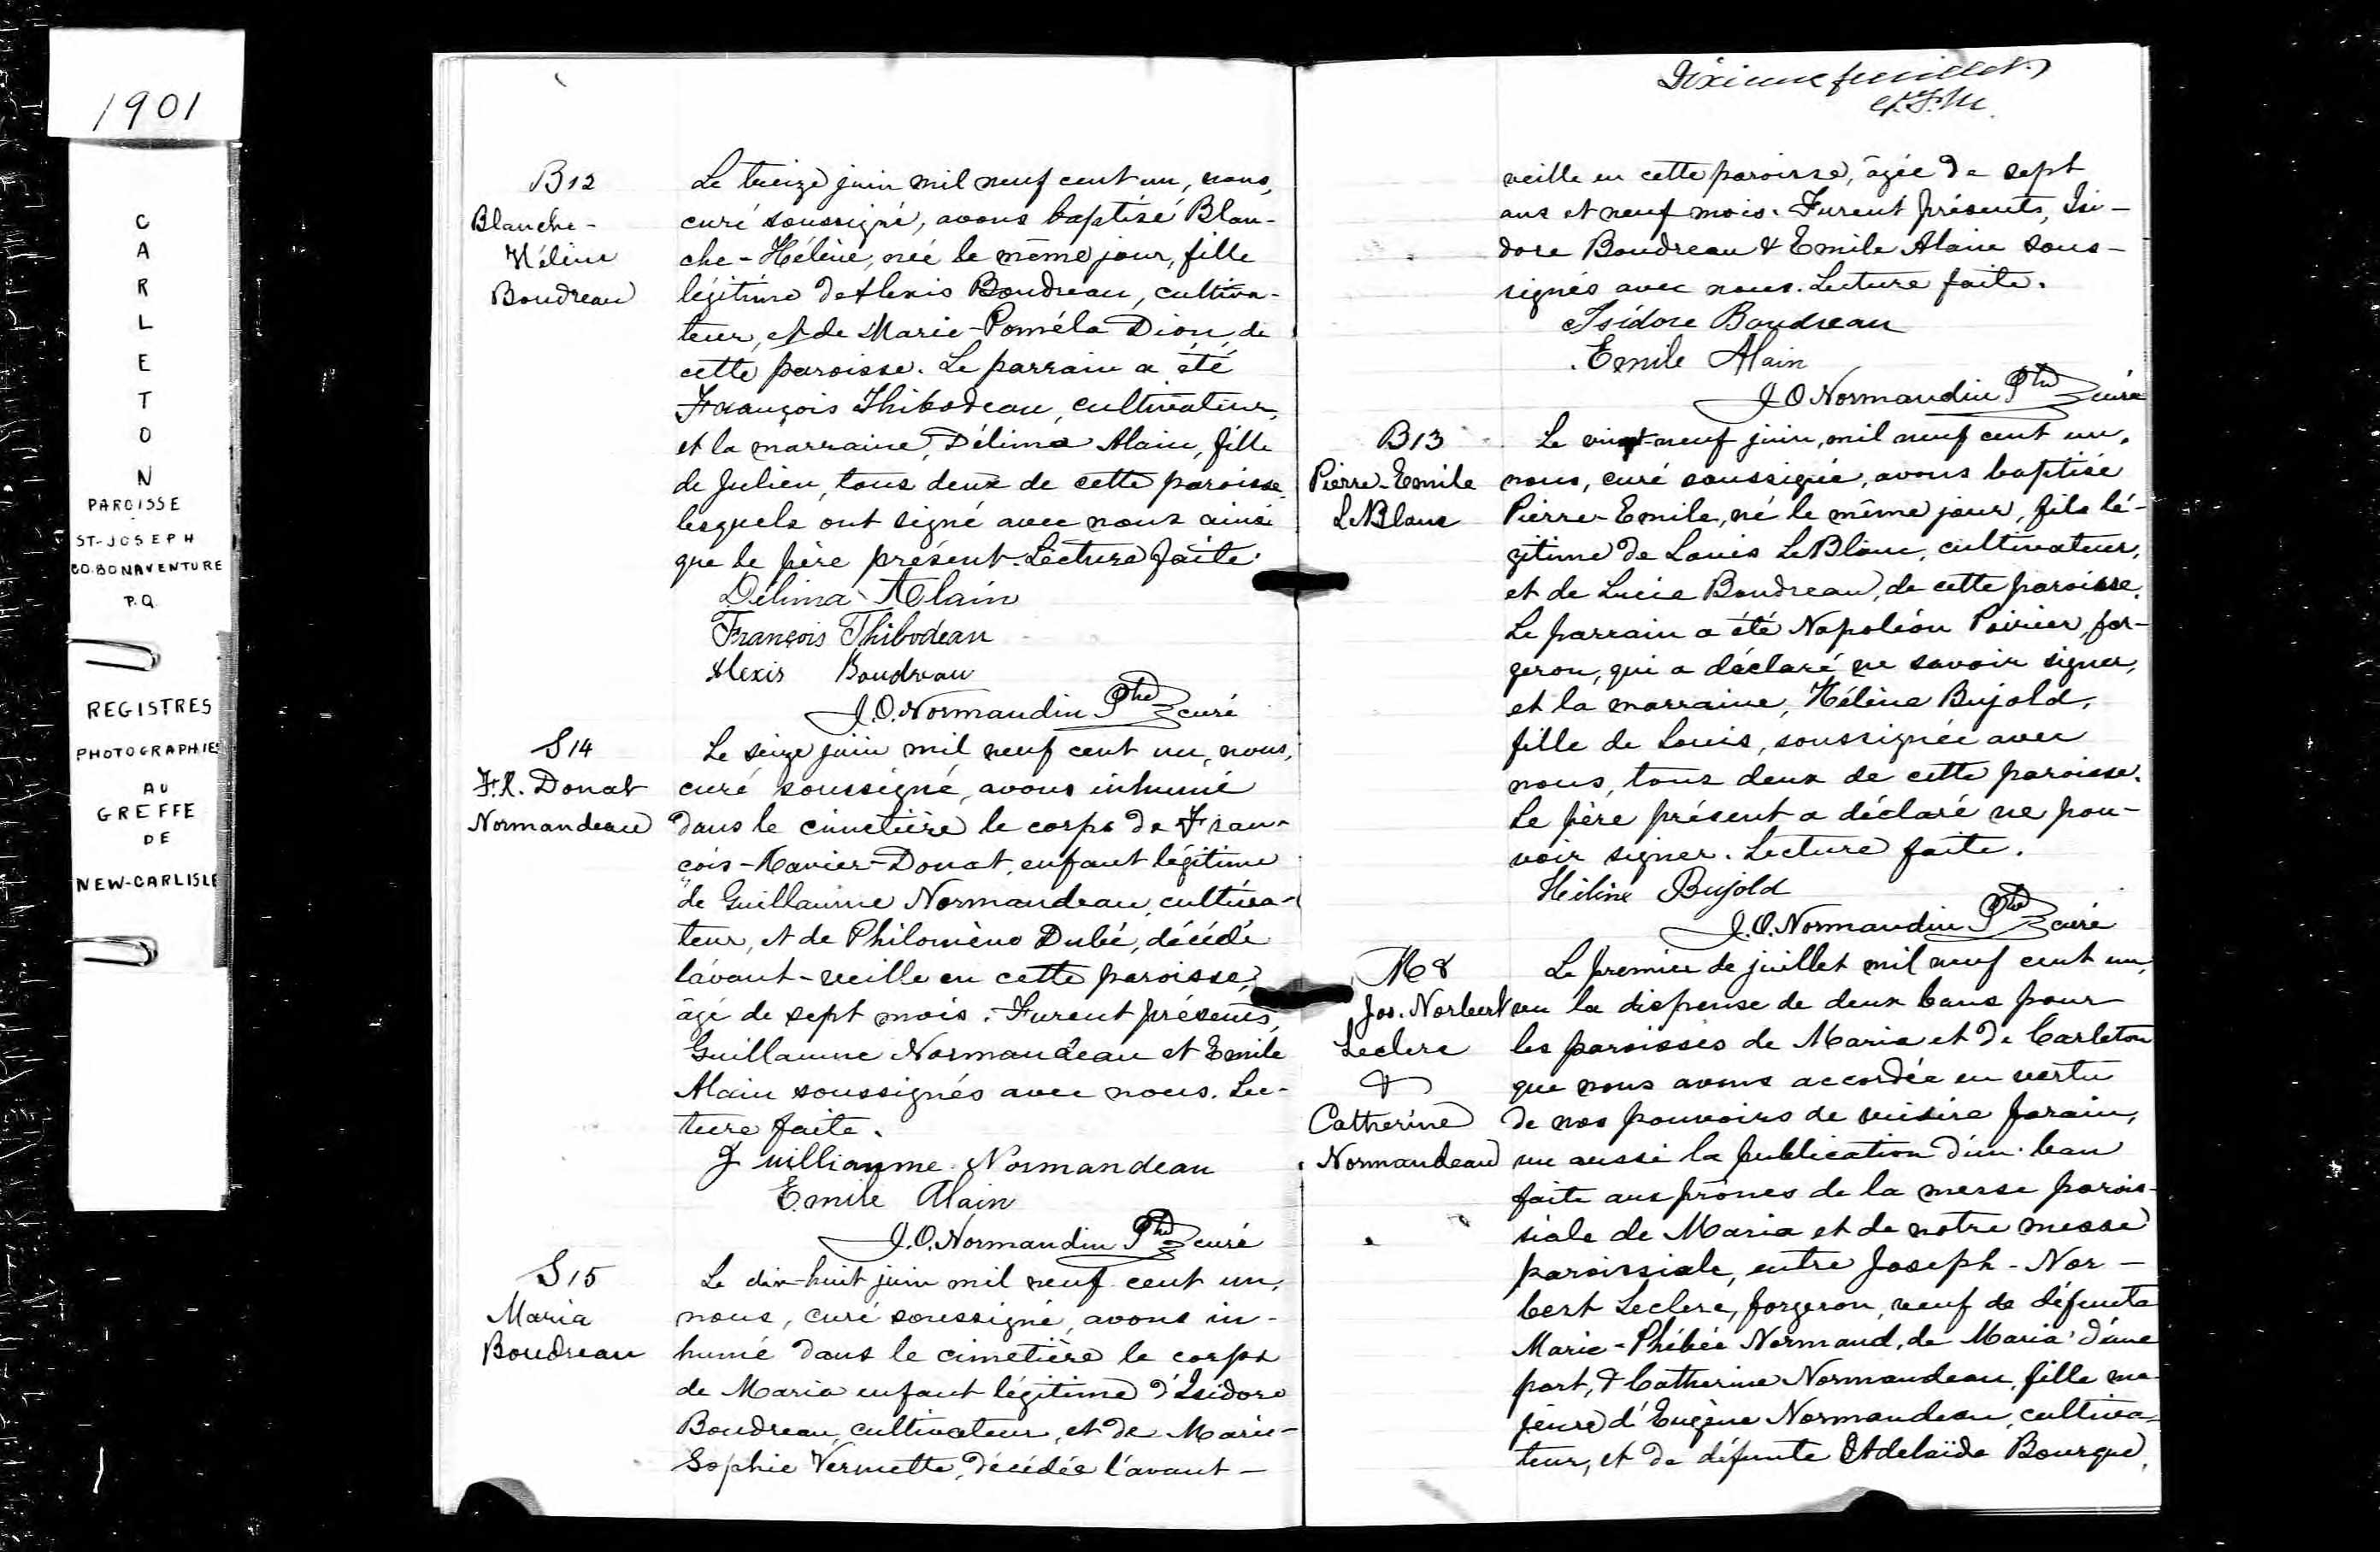 1901
CARLETON
PAROISSE
ST-JOSEPH
CO. BONAVENTURE
P.Q.
REGISTRES
PHOTOGRAPHIES
AU
GREFFE
DE
NEW-CARLISLE
B12
Blanche-
Hélène
Boudreau
Le treize juin mil neuf cent un, nous,
curé soussigné, avons baptisé Blan-
che-Hélène, née le même jour, fille
légitime d'Alexis Boudreau, cultiva-
teur, et de Marie-Poméla Dion, de
cette paroisse. Le parrain a été
François Thibodeau, cultivateur,
et la marraine, Délima Alain, fille
de Julien, tous deux de cette paroisse,
lesquels ont signé avec nous ainsi
que le père présent. Lecture faite.
Délima Alain
François Thibodeau
Alexis Boudreau
J.O. Normandin Ptre curé
S14
F.X. Donat
Normandeau
Le seize juin mil neuf cent un, nous,
curé soussigné, avons inhumé
dans le cimetière le corps de Fran-
çois-Xavier-Donat, enfant légitime
de Guillaume Normandeau, cultiva-
teur, et de Philomène Dubé, décédé
l'avant-veille en cette paroisse,
âgé de sept mois. Furent présents,
Guillaume Normandeau et Emile
Alain soussignés avec nous. Lec-
ture faite.
Guilliaume Normandeau
Emile Alain
J.O. Normandin Ptre curé
S15
Maria
Boudreau
Le dix-huit juin mil neuf cent un,
nous, curé soussigné, avons in-
humé dans le cimetière le corps
de Maria enfant légitime d'Isidore
Boudreau, cultivateur, et de Marie-
Sophie Vermette, décédée l'avant-
Dixieme feuillet
veille en cette paroisse, âgée de sept
ans et neuf mois. Furent présents, Isi-
dore Boudreau & Emile Alain sous-
signés avec nous. Lecture faite.
Isidore Boudreau
Emile Alain
J O Normandin Ptre curé
B13
Pierre-Emile
LeBlanc
Le vingt-neuf juin, mil neuf cent un,
nous, curé soussigné, avons baptisé
Pierre-Emile, né le même jour, fils lé-
gitime de Louis LeBlanc, cultivateur,
et de Lucie Boudreau, de cette paroisse.
Le parrain a été Napoléon Poirier, for-
geron, qui a déclaré ne savoir signer,
et la marraine, Hélène Bujold,
fille de Louis, soussignée avec
nous, tous deux de cette paroisse.
Le père présent a déclaré ne pou-
voir signer. Lecture faite.
Heiline Bujold
J.O. Normandin Ptre curé
M8
Jos. Norbert
Leclerc
&
Catherine
Normandeau
Le premier de juillet mil neuf cent un,
vu la dispense de deux bans pour
les paroisses de Maria et de Carleton
que nous avons accordée en vertu
de nos pouvoirs de vicaire forain,
vu aussi la publication d'un ban
faite aus prônes de la messe parois-
siale de Maria et de notre messe
paroissiale, entre Joseph-Nor-
bert Leclerc, forgeron, veuf de défunte
Marie-Phébée Normand, de Maria d'une
part, & Catherine Normandeau, fille ma-
jeure d'Eugène Normandeau, cultiva-
teur, et de défunte Adelaïde Bourque,